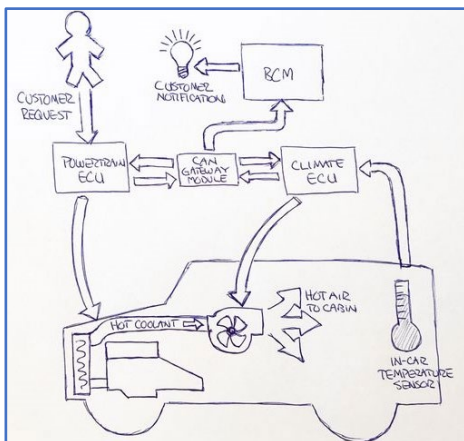 CUSTOMER
REQUEST
CUSTOMER
NOTIFICATION
BCM
POWERTRAIN
ECU
CAN
GATEWAY
MODULE
CLIMATE
ECU
HOT COOLANT
HOT AIR
TO CABIN
IN-CAR
TEMPERATURE
SENSOR